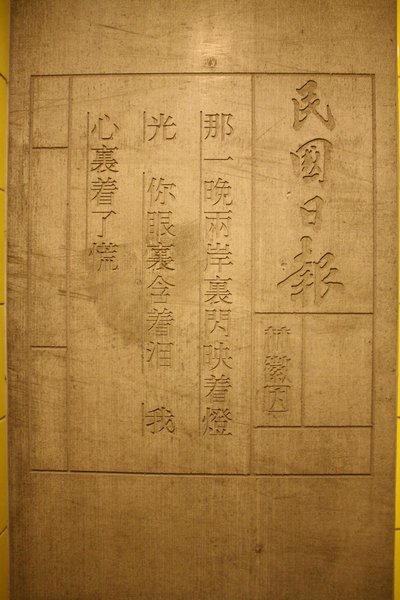 民國日報
林徽因
那一晚兩岸裏閃映着燈
光 你眼裏含着泪 我
心裏着了慌